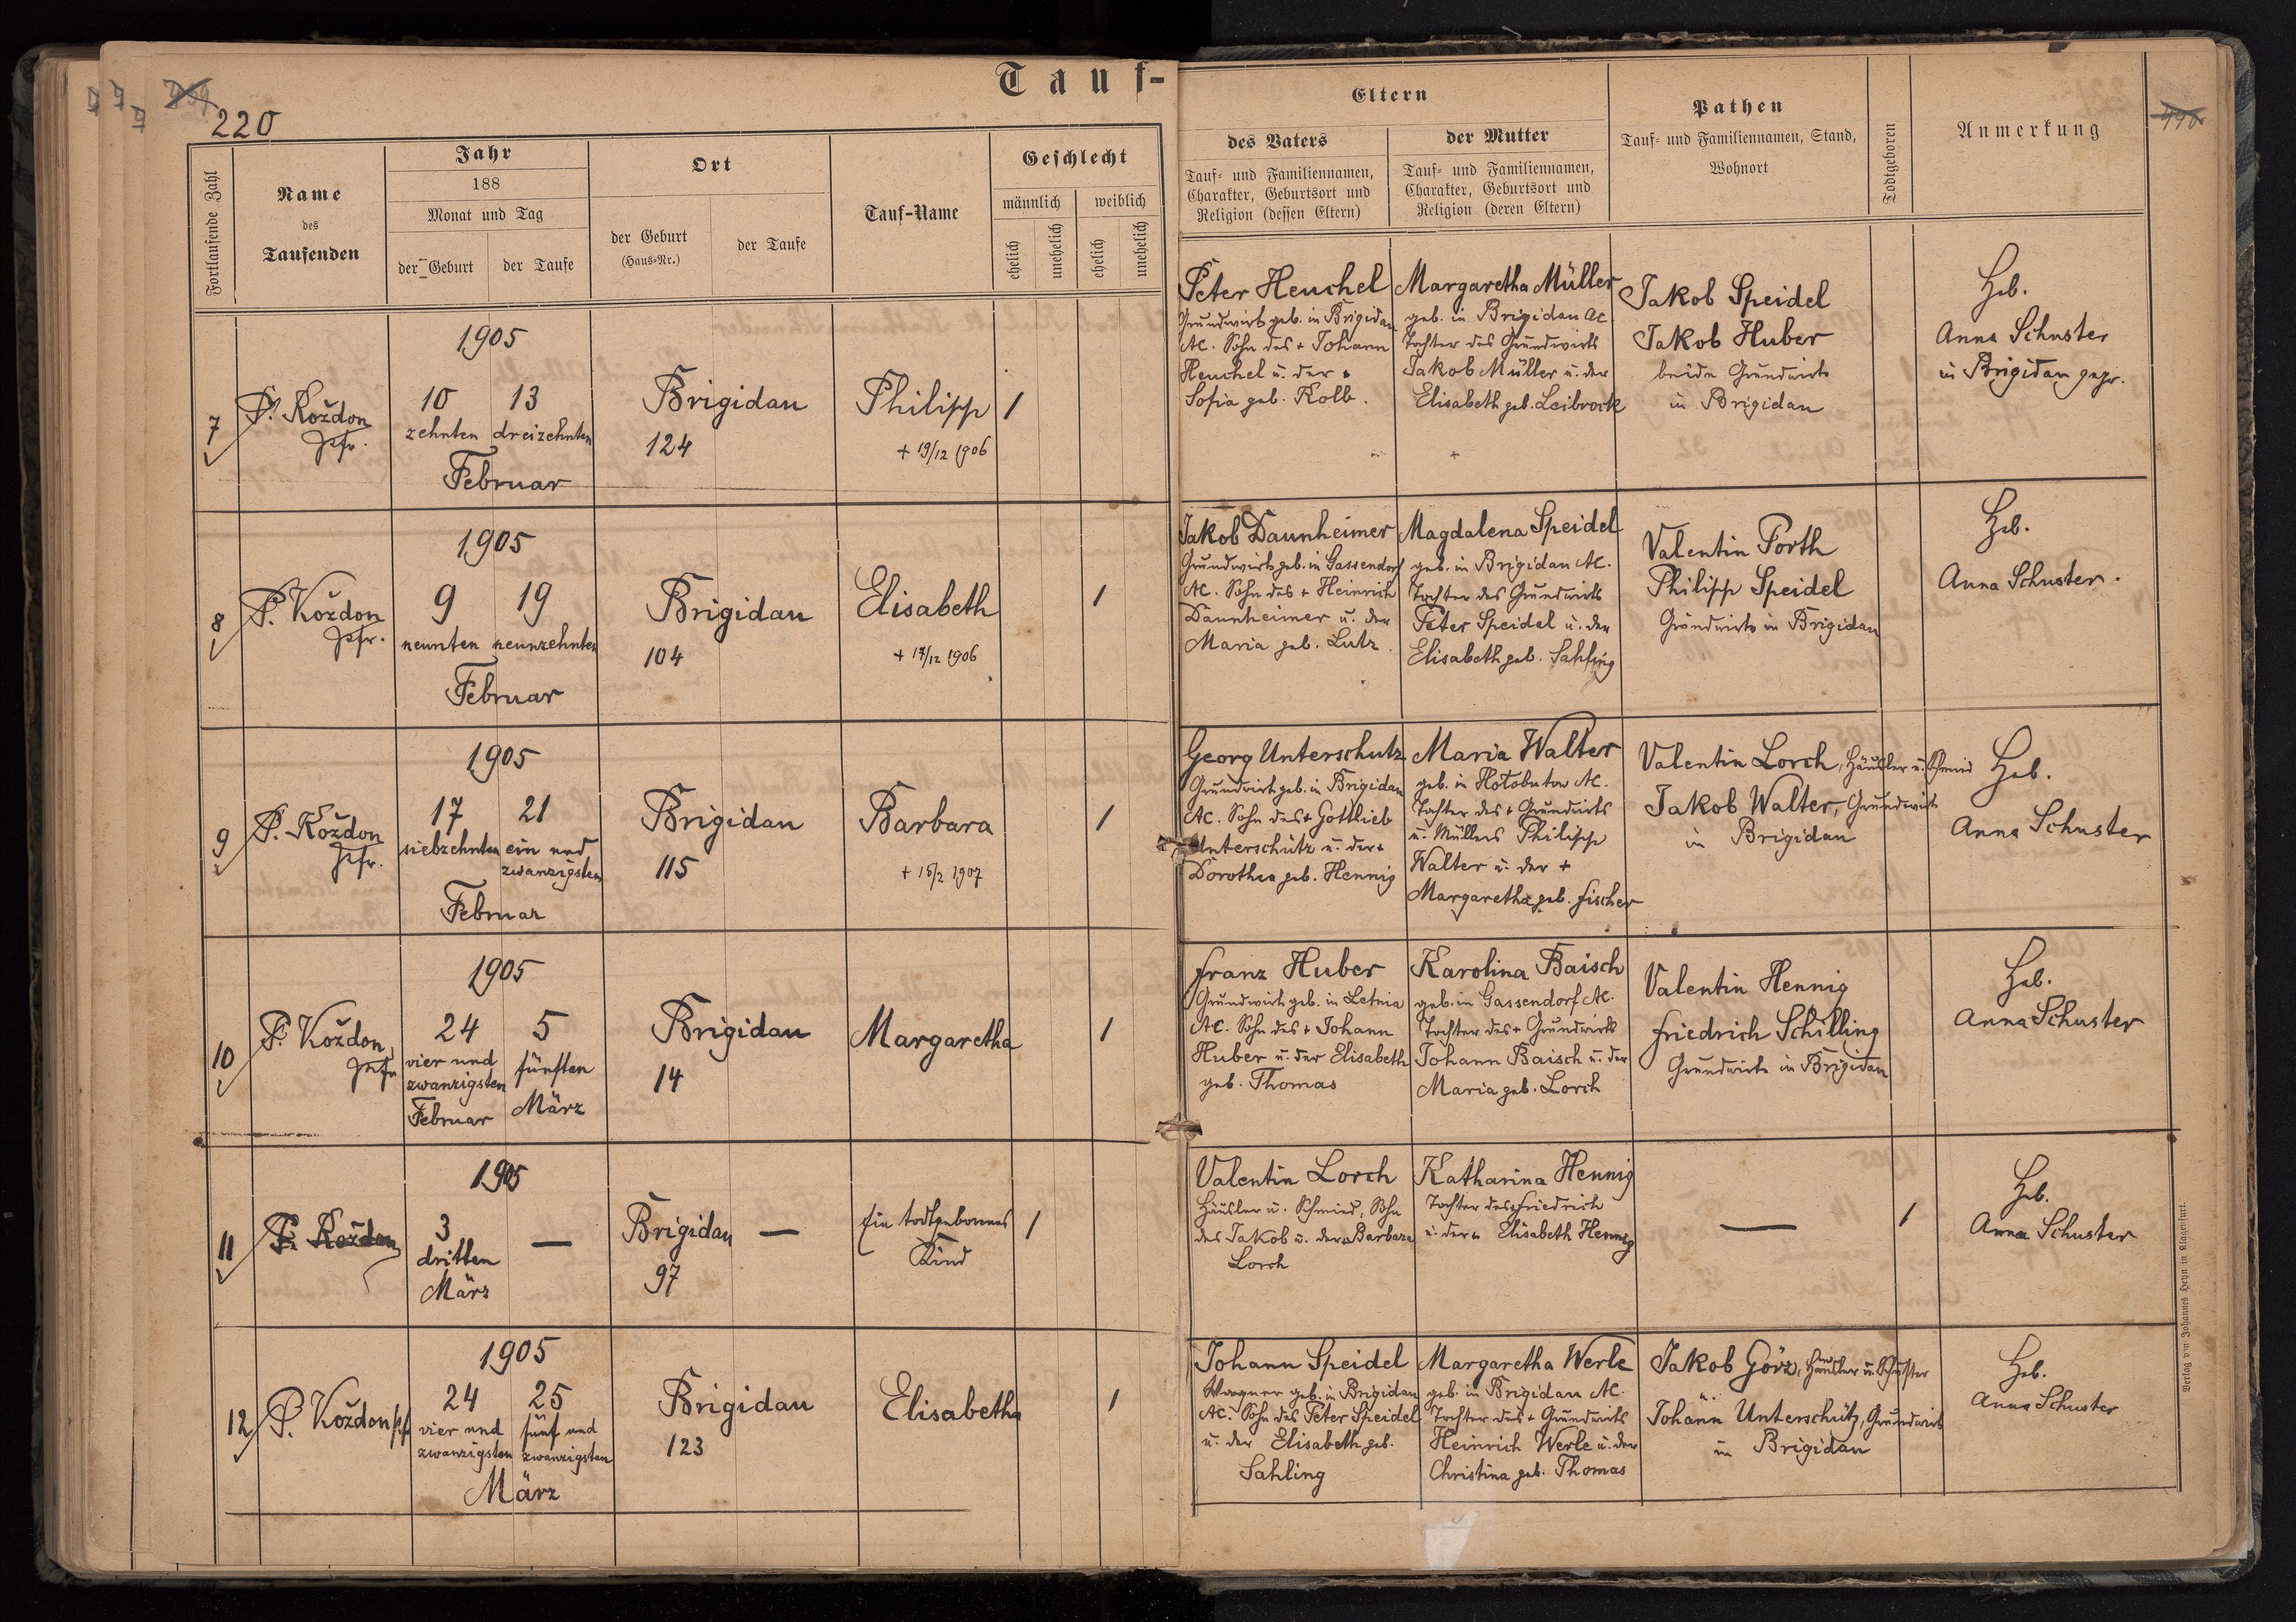 220
Tauf-
Fortlaufende Zahl
Name
des
Taufenden
Jahr
188
Monat und Tag
der Geburt
der Taufe
Ort
der Geburt
(Haus-Nr.)
der Taufe
Tauf-Name
Geschlecht
männlich
weiblich
ehelich
unehelich
ehelich
unehelich
Eltern
des Vaters
Tauf- und Familiennamen,
Charakter, Geburtsort und
Religion (dessen Eltern)
der Mutter
Tauf- und Familiennamen,
Charakter, Geburtsort und
Religion (deren Eltern)
Pathen
Tauf- und Familiennamen, Stand,
Wohnort
Todtgeboren
Anmerkung
7
P. Koždon
Pfr.
1905
10
zehnten
13
dreizehnten
Februar
Brigidau
124
Philipp
+ 19/12 1906
1
Peter Heuchel
Grundwirt geb. in Brigidau
AC. Sohn des + Johann
Heuchel u. der +
Sofia geb. Kolb.
Margaretha Müller
geb. in Brigidau AC
Tochter des Grundwirts
Jakob Müller u. der
Elisabeth geb. Leibrock
Jakob Speidel
Jakob Huber
beide Grundwirte
in Brigidau
Heb.
Anna Schuster
in Brigidau gepr.
8
P. Koždon
Pfr.
1905
9
neunten
19
neunzehnten
Februar
Brigidau
104
Elisabeth
+ 17/12 1906
1
Jakob Daunheimer
Grundwirt geb. in Gassendorf
AC. Sohn des + Heinrich
Daunheimer u. der
Maria geb. Lutz.
Magdalena Speidel
geb. in Brigidau AC.
Tochter des Grundwirts
Peter Speidel u. der
Elisabeth geb. Sahling
Valentin Porth
Philipp Speidel
Grundwirte in Brigidau
Heb.
Anna Schuster.
9
P. Koždon
Pfr.
1905
17
siebzehnten
21
ein und
zwanzigsten
Februar
Brigidau
115
Barbara
+ 15/2 1907
1
Georg Unterschutz
Grundwirt geb. in Brigidau
AC. Sohn des + Gottlieb
Unterschütz u. der +
Dorothea geb. Hennig
Maria Walter
geb. in AC.
Tochter des + Grundwirts
u. Müllers Philipp
Walter u. der +
Margaretha geb. Fischer
Valentin Lorch, Häusler u. Schmied
Jakob Walter, Grundwirt
in Brigidau
Heb.
Anna Schuster
10
P. Koždon
Pfr
1905
24
vier und
zwanzigsten
Februar
5
fünften
März
Brigidau
14
Margaretha
1
Franz Huber
Grundwirt geb. in Letnia
AC. Sohn des + Johann
Huber u. der Elisabeth
geb. Thomas
Karolina Baisch
geb. in Gassendorf AC.
Tochter des + Grundwirts
Johann Baisch u. der
Maria geb. Lorch
Valentin Hennig
Friedrich Schilling
Grundwirte in Brigidau
Heb.
Anna Schuster
11
P. Koždon
1905
3
dritten
März
—
Brigidau
97
—
Ein todtgebornes
Kind
1
Valentin Lorch
Häusler u. Schmied, Sohn
des Jakob u. der Barbara
Lorch
Katharina Hennig
Tochter des Friedrich
u. der Elisabeth Hennig
—
1
Heb.
Anna Schuster
12
P. Koždon Pf
1905
24
vier und
zwanzigsten
25
fünf und
zwanzigsten
März
Brigidau
123
Elisabetha
1
Johann Speidel
Wagner geb. in Brigidau
AC. Sohn des Peter Speidel
u. der Elisabeth geb.
Sahling
Margaretha Werle
geb. in Brigidau AC.
Tochter des + Grundwirts
Heinrich Werle u. der
Christina geb. Thomas
Jakob Görz, Häusler u. Schuster
u.
Johann Unterschütz, Grundwirt
in Brigidau
Heb.
Anna Schuster
Verlag von Johannes Heyn in Klagenfurt.